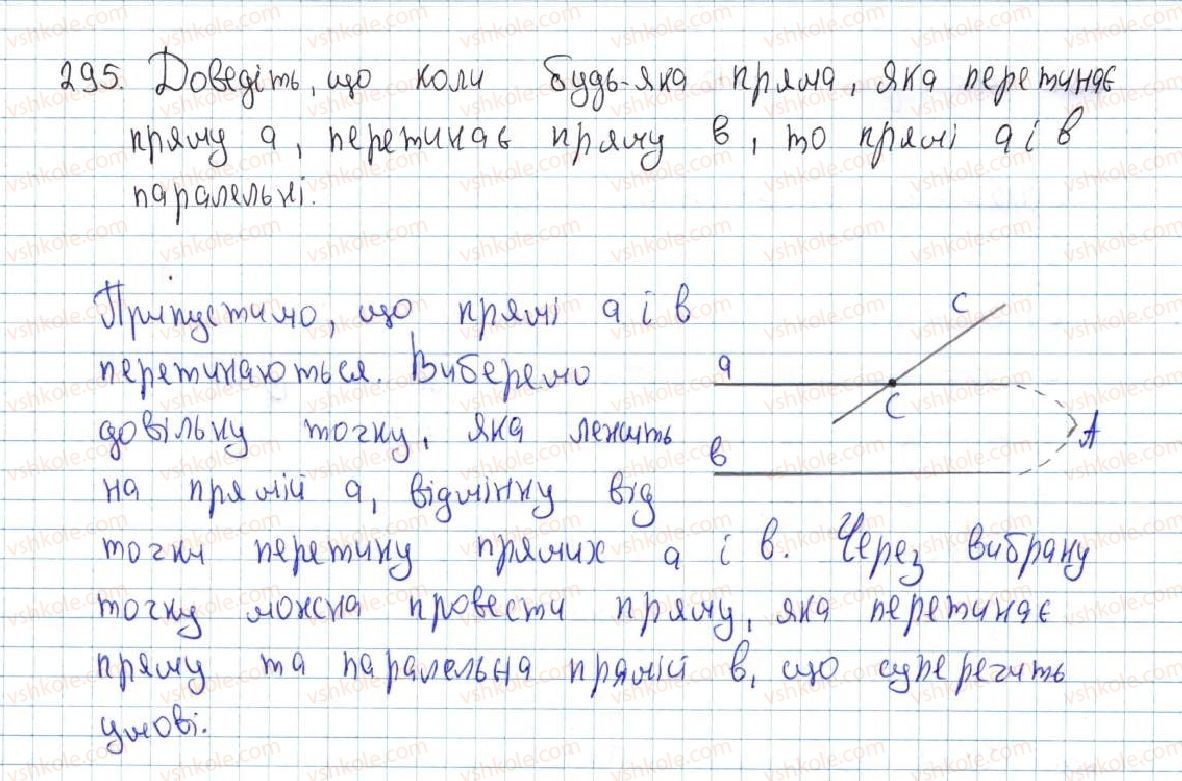 295. Доведіть, що коли будь-яка пряма, яка перетинає
пряму a, перетинає пряму b, то прямі a і b
паралельні.
Припустимо, що прямі a і b
перетинаються. Виберемо
довільну точку, яка лежить
на прямій a, відмінну від
точки перетину прямих a і b. Через вибрану
точку можна провести пряму, яка перетинає
пряму та паралельна прямій b, що суперечить
умові.
c
a
C
A
b
vshkole.com